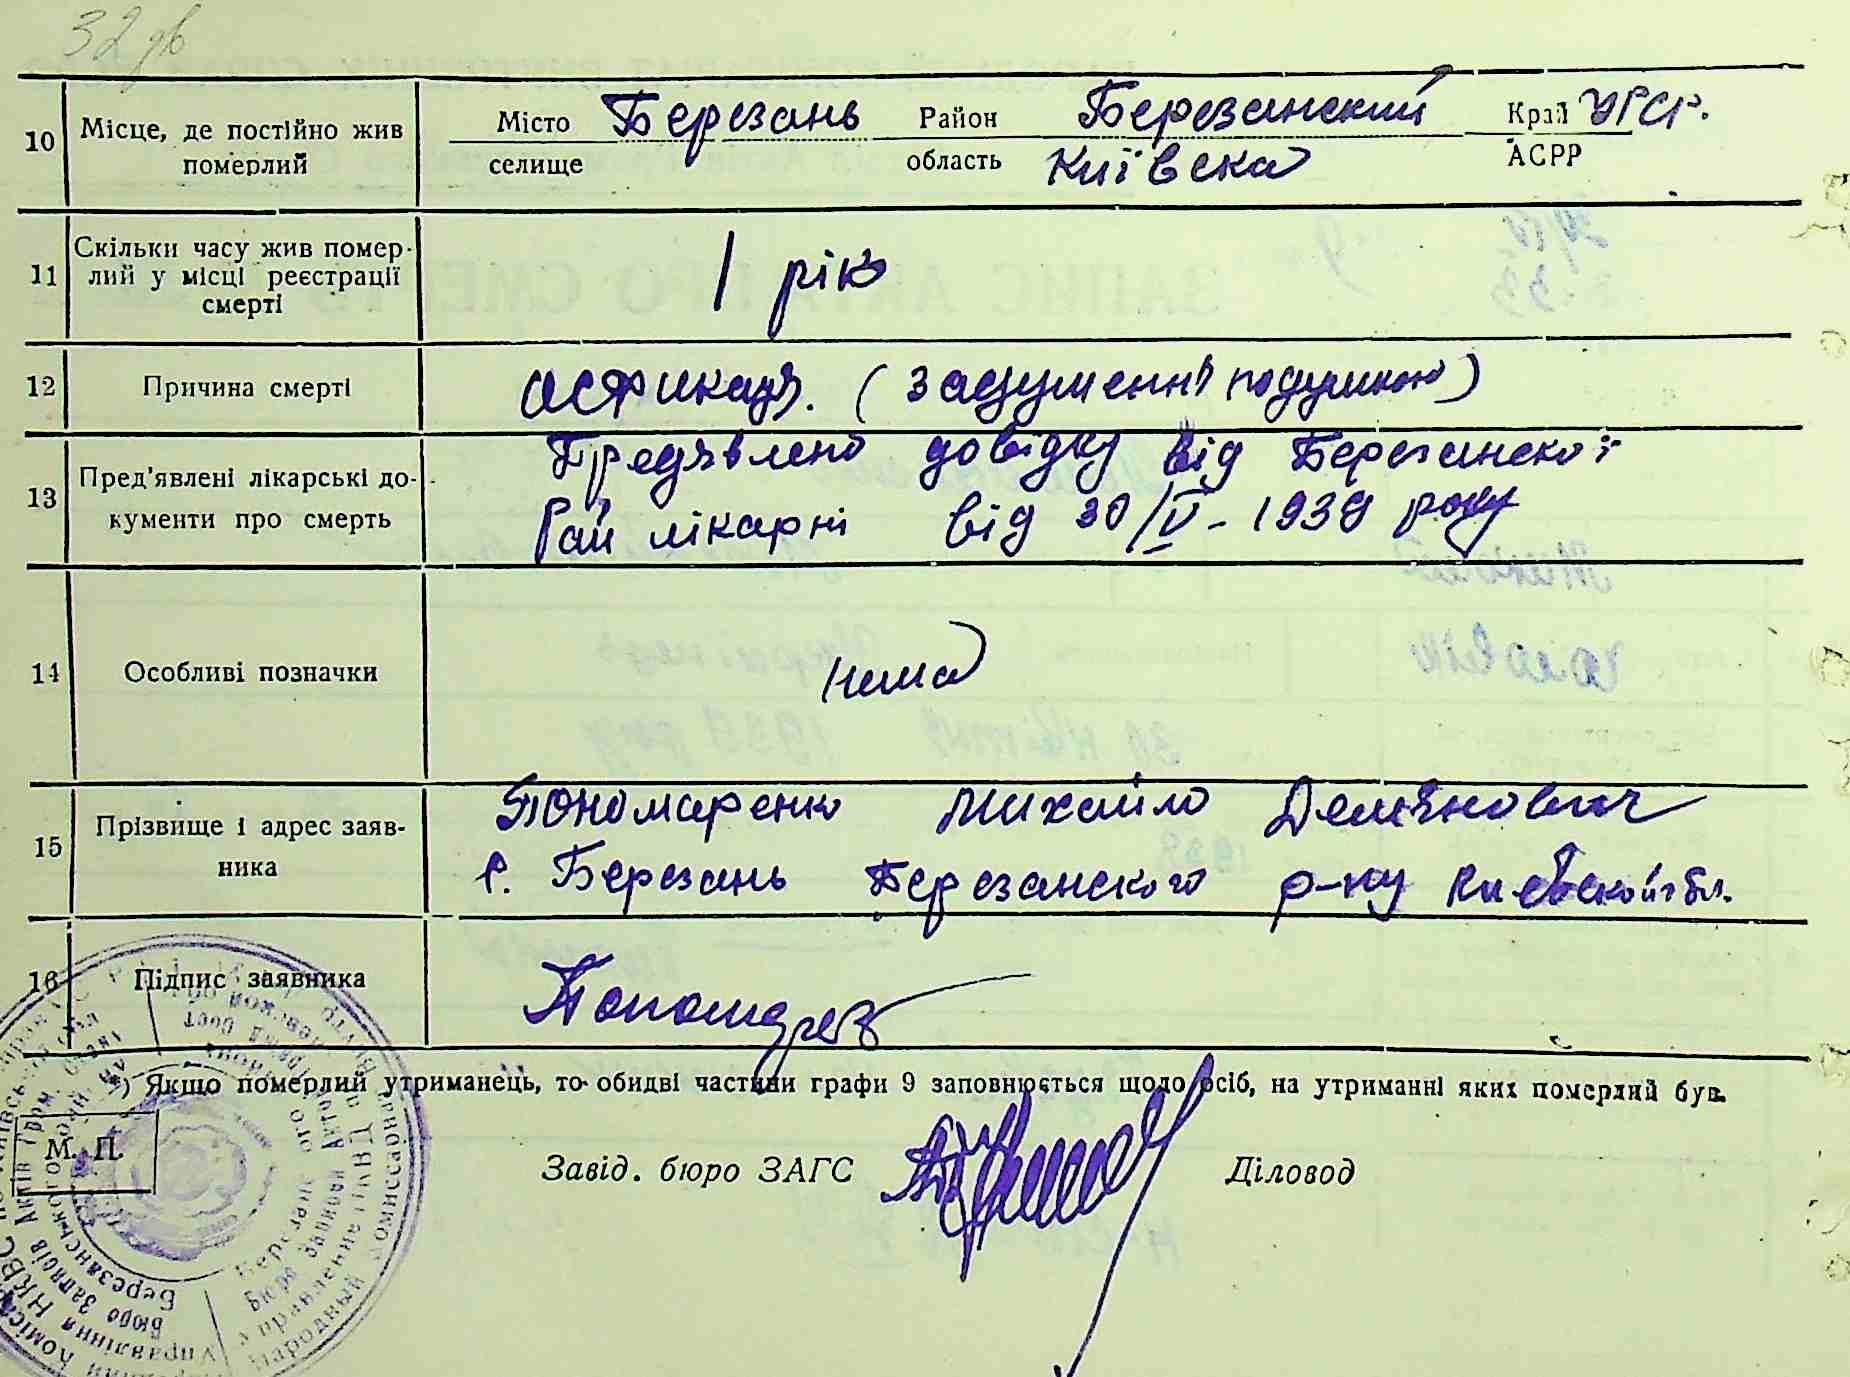 32 зв
10 Місце, де постійно жив померлий
Місто Березань Район Березанский Край УРСР.
селище область Київска АСРР
11 Скільки часу жив помер-
лий у місці реєстрації
смерті
1 рік
12 Причина смерті
Асфикция. (Задушення подушкою)
13 Пред'явлені лікарські до-
кументи про смерть
Предявлено довідку від Березанскоі
Рай лікарні від 30/IV - 1939 року
14 Особливі позначки
нема
15 Прізвище і адрес заяв-
ника
Пономаренко Михайло Демянович
с. Березань Березанского р-ну Киевской обл.
16 Підпис заявника
*) Якщо померлий утриманець, то обидві частини графи 9 заповнюється щодо осіб, на утриманні яких померлий був.
М. П.
Завід. бюро ЗАГС Діловод